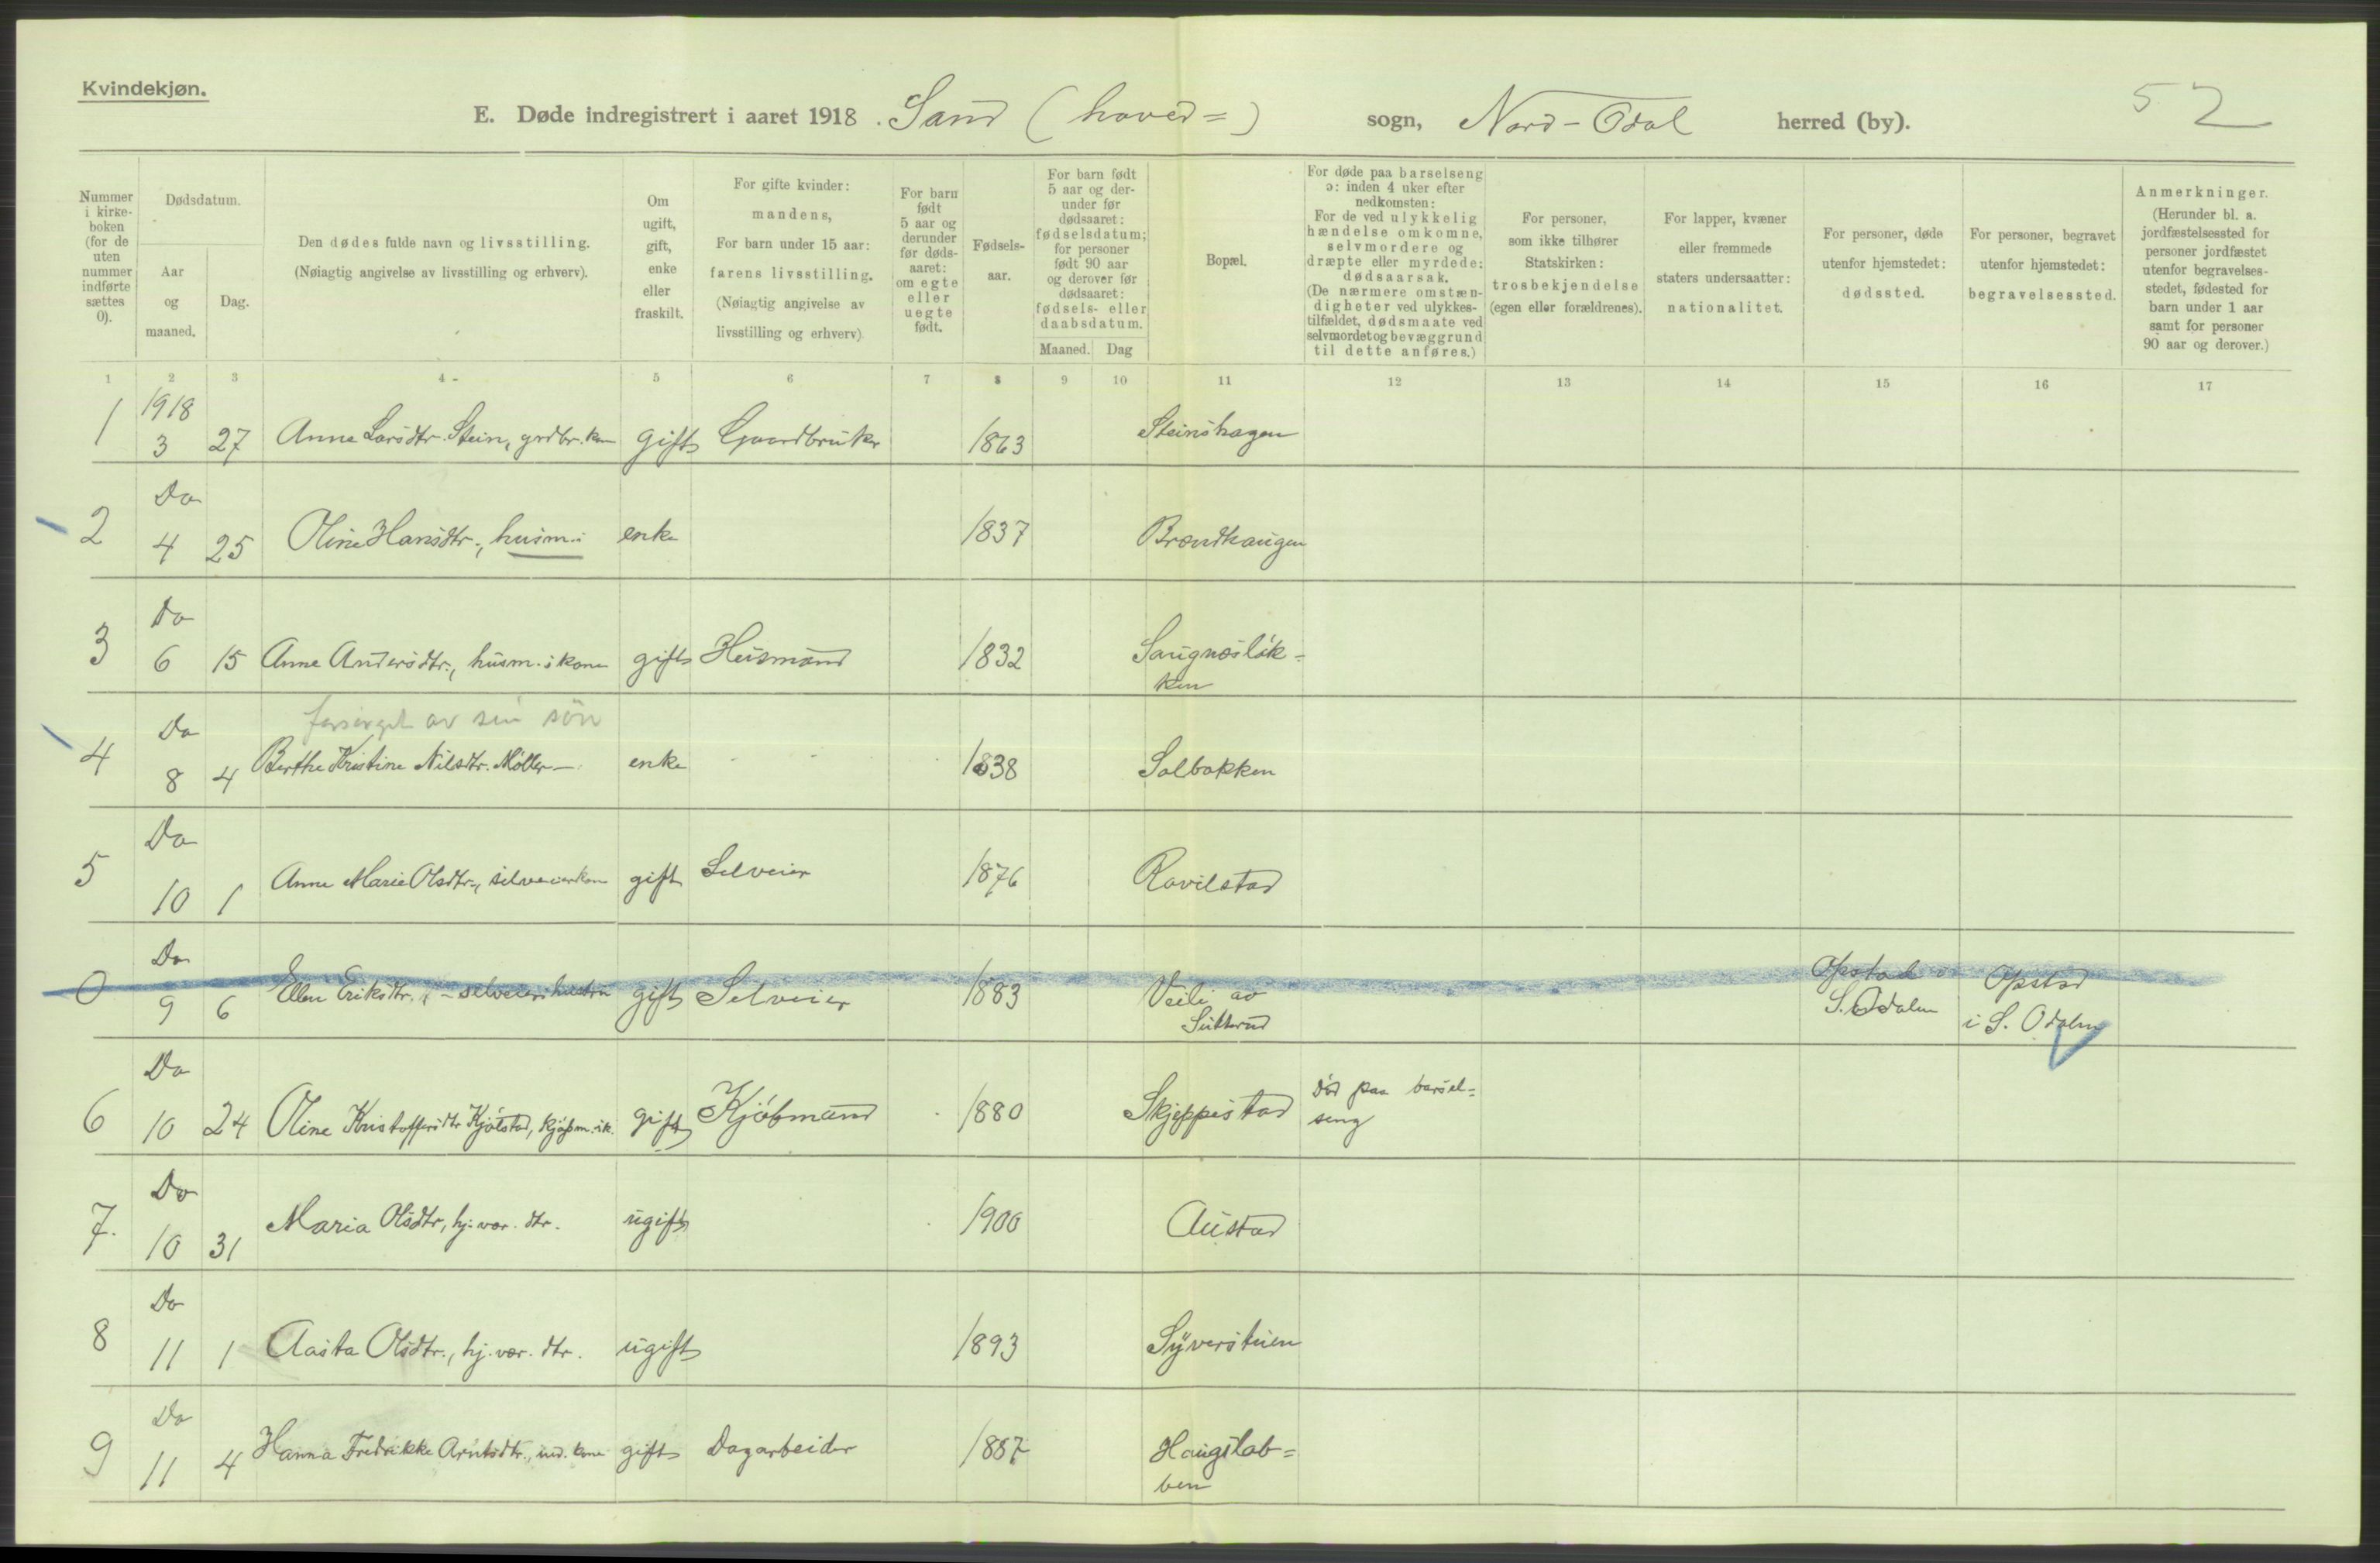 Kvindekjøn.
E. Døde indregistrert i aaret 1918. Sand (hoved=) sogn, Nord-Odal herred (by).
52
Nummer i kirke-boken (for de uten nummer indførte sættes 0).
Dødsdatum.
Aar og maaned.
Dag.
Den dødes fulde navn og livsstilling.
(Nøiagtig angivelse av livsstilling og erhverv).
Om ugift, gift, enke eller fraskilt.
For gifte kvinder: mandens,
For barn under 15 aar: farens livsstilling.
(Nøiagtig angivelse av livsstilling og erhverv)
For barn født 5 aar og derunder før døds-aaret: om egte eller uegte født.
Fødsels-aar.
For barn født 5 aar og der-under før dødsaaret: fødselsdatum; for personer født 90 aar og derover før dødsaaret: fødsels- eller daabsdatum.
Maaned. Dag
Bopæl.
For døde paa barselseng ɔ: inden 4 uker efter nedkomsten:
For de ved ulykkelig hændelse omkomne, selvmordere og dræpte eller myrdede: dødsaarsak.
(De nærmere omstæn-digheter ved ulykkes-tilfældet, dødsmaate ved selvmordet og bevæggrund til dette anføres.)
For personer, som ikke tilhører Statskirken: trosbekjendelse (egen eller forældrenes).
For lapper, kvæner eller fremmede staters undersaatter: nationalitet.
For personer, døde utenfor hjemstedet: dødssted.
For personer, begravet utenfor hjemstedet: begravelsessted.
Anmerkninger.
(Herunder bl. a. jordfæstelsessted for personer jordfæstet utenfor begravelses-stedet, fødested for barn under 1 aar samt for personer 90 aar og derover.)
1 2 3 4 5 6 7 8 9 10 11 12 13 14 15 16 17
1918
1 3 27 Anne Larsdtr. Stein, grdbr. kone gift Gaardbruker 1863 Steinshagen
Do
2 4 25 Oline Hansdtr., husm.s enke 1837 Brændhaugen
Do
3 6 15 Anne Andersdtr., husm.s kone gift Husmand 1832 Saugnesløk=
ken
forsørget av sin søn
Do
4 8 4 Berthe Kristine Nilsdtr. Møller enke 1838 Solbakken
Do
5 10 1 Anne Marie Olsdtr., selveierkone gift Selveier 1876 Rovilstad
Do
0 9 6 Ellen Eriksdtr. selveiers hustru gift Selveier 1883 Veili av Opstad Opstad
S. Odalen i S. Odalen
Do
6 10 24 Oline Kristoffersdtr Kjølstad, kjøbm.s k. gift Kjøbmand 1880 Skjeppestad Død paa barsel=
seng
Do
7. 10 31 Maria Olsdtr, hj. vær. dtr. ugift 1900 Austad
Do
8 11 1 Aasta Olsdtr., hj. vær. dtr. ugift 1893 Syverstuen
Do
9 11 4 Hanna Fredrikke Arntsdtr., ind. kone gift Dagarbeider 1887 Haugslab=
ben